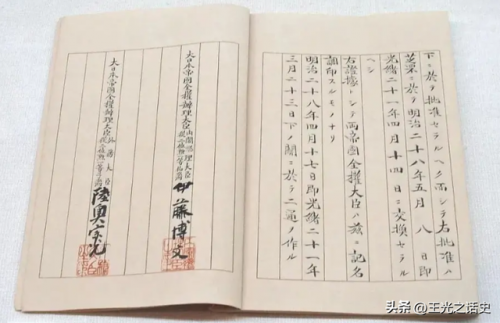 下ニ於テ批准セラルヘク而シテ右批准ハ
芝罘ニ於テ明治二十八年五月八日即
光緒二十一年四月十四日ニ交換セラル
ヘシ
右證據トシテ兩帝國全權大臣ハ茲ニ記名
調印スルモノナリ
明治二十八年四月十七日即光緒二十一年
三月二十三日下ノ關ニ於テ二通ヲ作ル
大日本帝國全權辦理大臣内閣總理大臣 伊藤博文
大日本帝國全權辦理大臣外務大臣 陸奥宗光
头条 @王光之话史